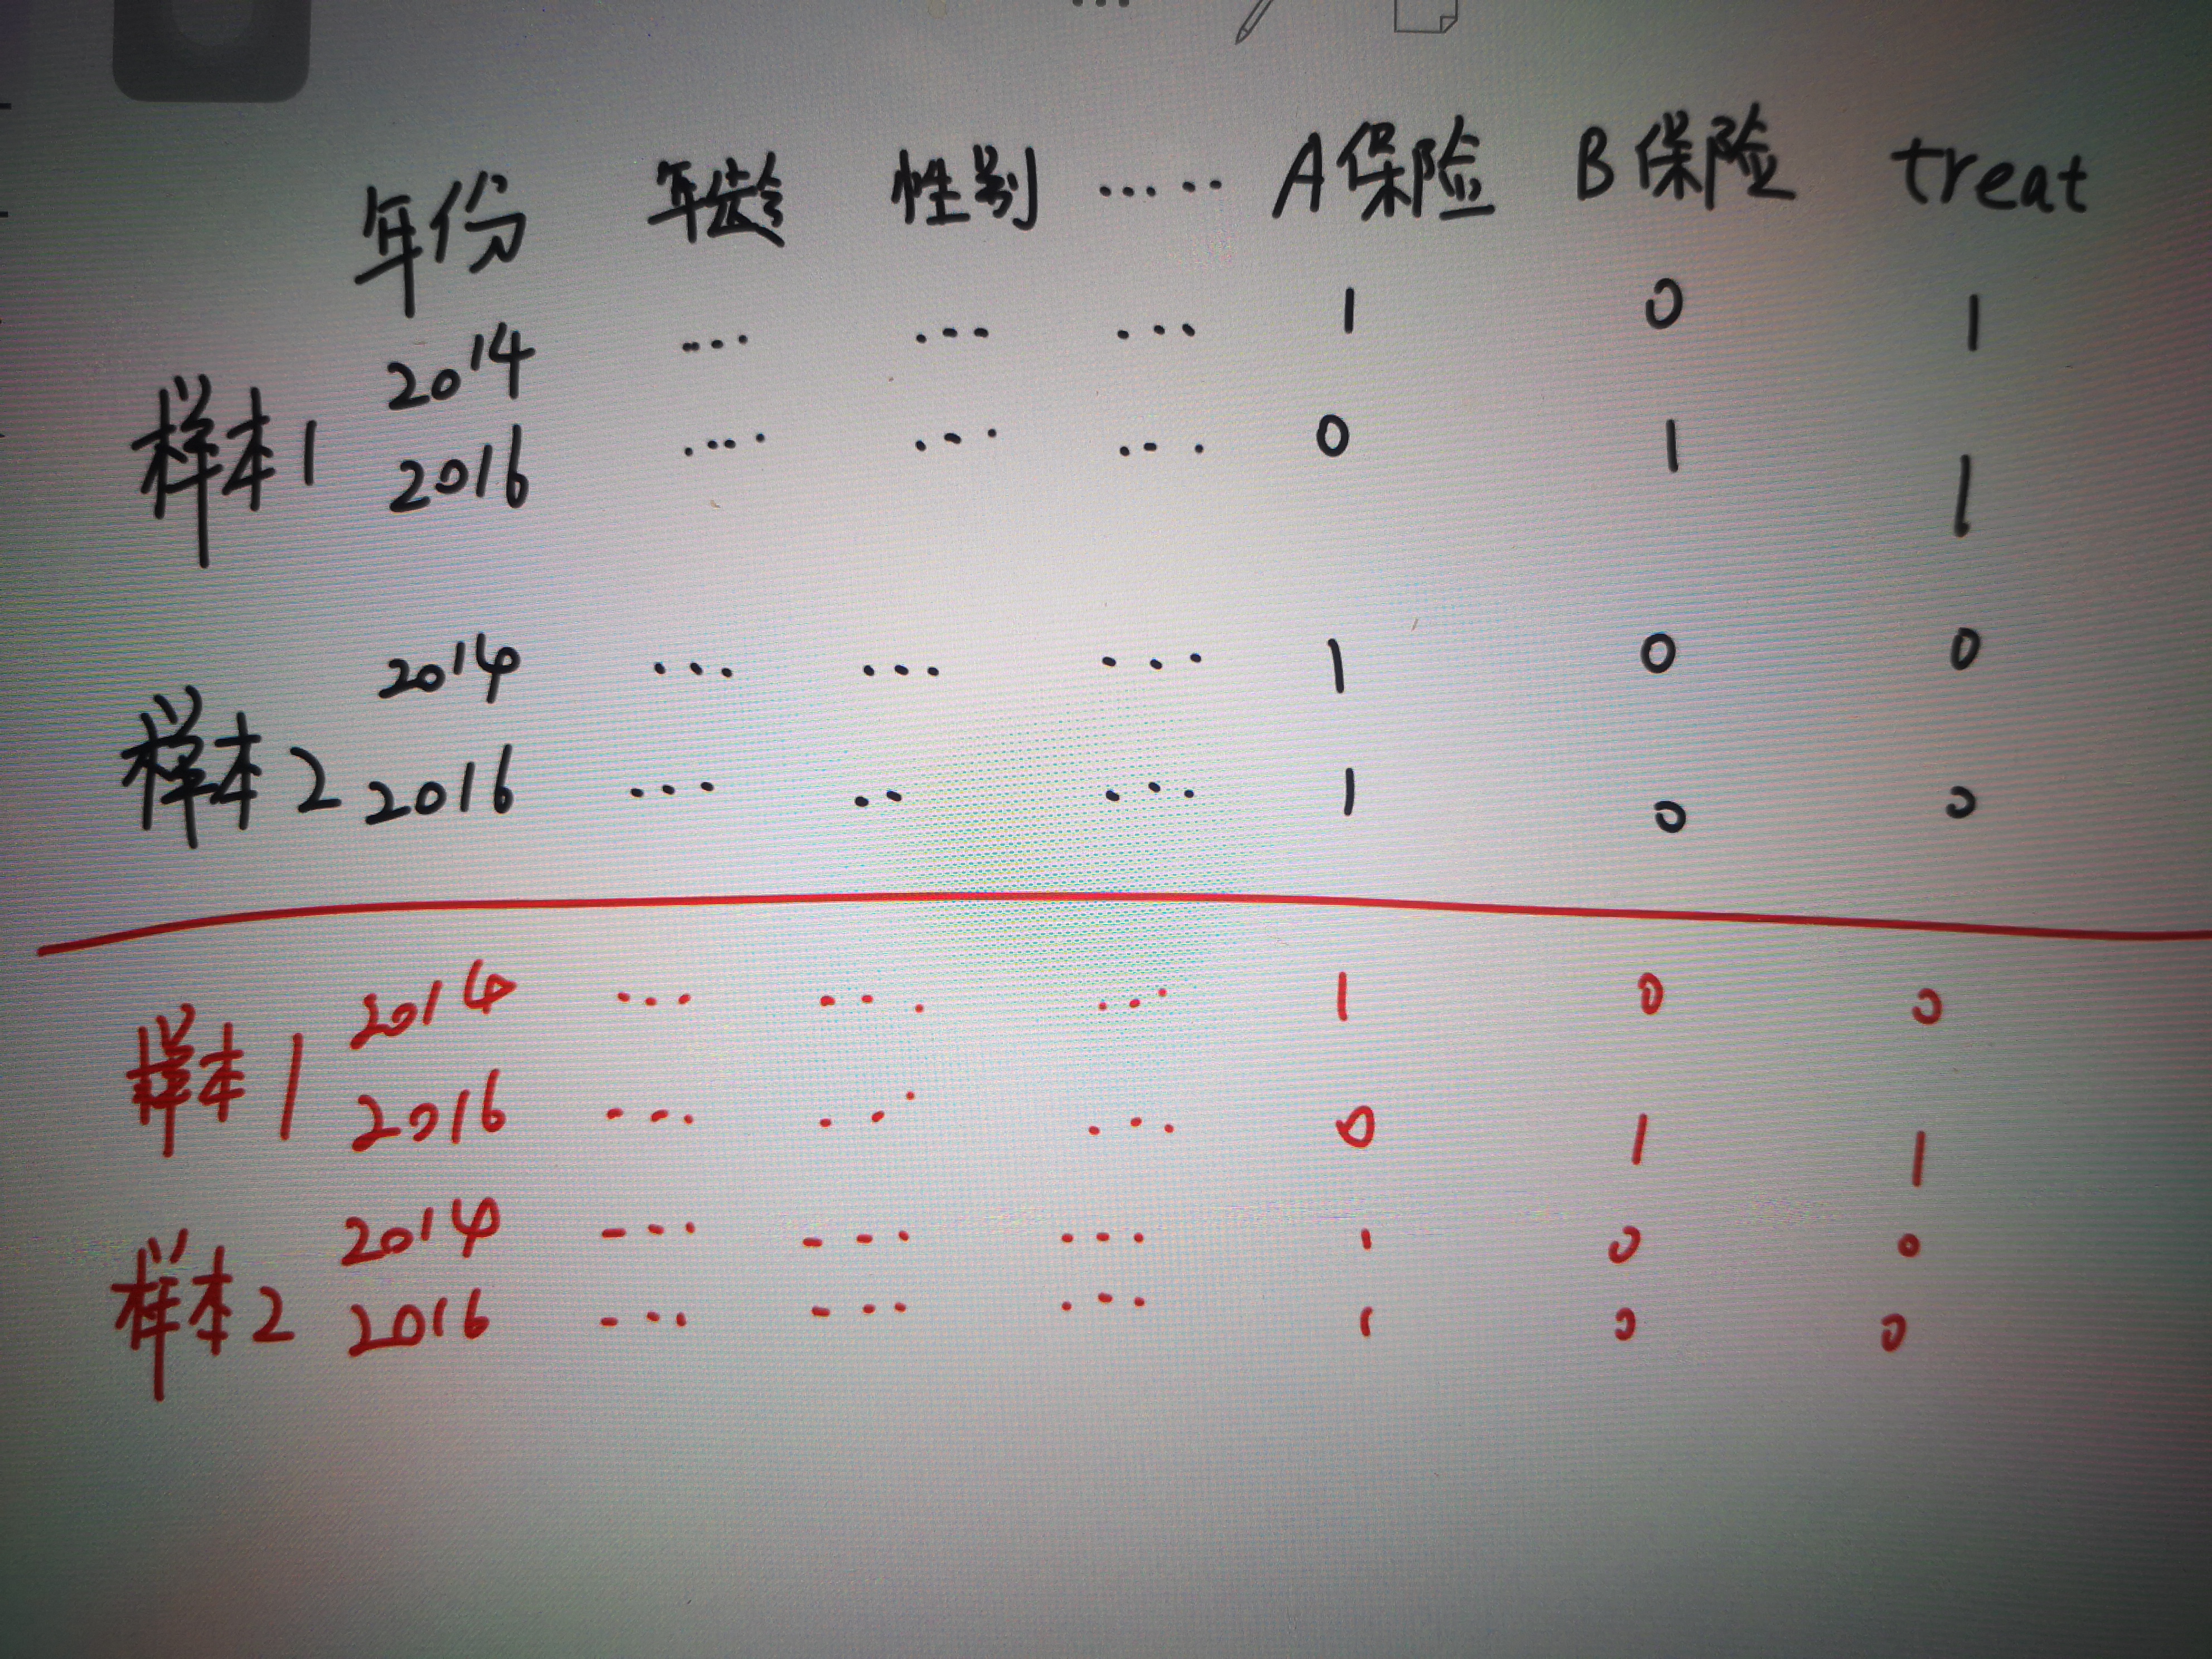 年份 年龄 性别 ...... A保险 B保险 treat
2014 ... ... ... 1 0 1
样本1
2016 ... ... ... 0 1 1
2014 ... ... ... 1 0 0
样本2
2016 ... .. ... 1 0 0
2014 ... ... ... 1 0 0
样本1
2016 ... ... ... 0 1 1
2014 ... ... ... 1 0 0
样本2
2016 ... ... ... 1 0 0